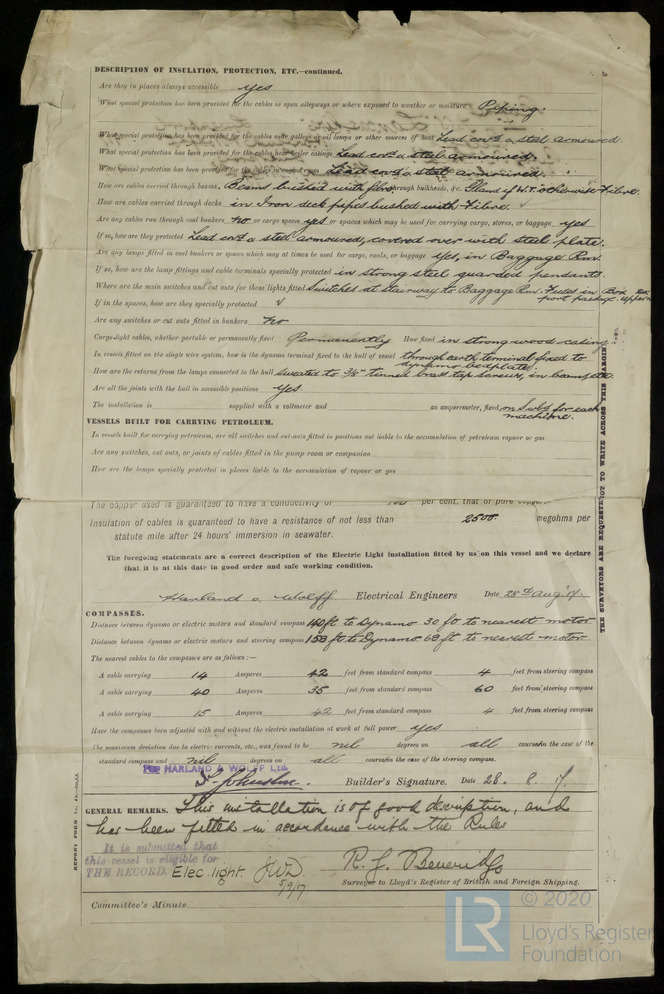 DESCRIPTION OF INSULATION, PROTECTION, ETC.—continued.
Are they in places always accessible yes
What special protection has been provided for the cables in open alleyways or where exposed to weather or moisture Piping.
What special protection has been provided for the cables near galleys or oil lamps or other sources of heat Lead cov'd & steel armoured.
What special protection has been provided for the cables near boiler casings Lead cov'd & steel armoured.
What special protection has been provided for the cables in engine room Lead cov'd & steel armoured.
How are cables carried through beams Beams bushed with fibre through bulkheads, &c. Gland if W.T. otherwise Fibre.
How are cables carried through decks in Iron deck pipes bushed with Fibre. ✓
Are any cables run through coal bunkers no or cargo spaces yes or spaces which may be used for carrying cargo, stores, or baggage yes
If so, how are they protected Lead cov'd & steel armoured, covered over with steel plate.
Are any lamps fitted in coal bunkers or spaces which may at times be used for cargo, coals, or baggage yes, in Baggage Rm.
If so, how are the lamp fittings and cable terminals specially protected in strong steel guarded pendants.
Where are the main switches and cut outs for these lights fitted Switches at Stairway to Baggage Rm. Fuses in Box
If in the spaces, how are they specially protected ✓
Are any switches or cut outs fitted in bunkers no
Cargo light cables, whether portable or permanently fixed Permanently How fixed in strong wood casing.
In vessels fitted on the single wire system, how is the dynamo terminal fixed to the hull of vessel through earth terminal fixed to dynamo bedplate.
How are the returns from the lamps connected to the hull sweated to 3/8" tinned brass tap screws, in beams, etc.
Are all the joints with the hull in accessible positions yes.
The installation is supplied with a voltmeter and an amperemeter, fixed on Swbd for each machine.
VESSELS BUILT FOR CARRYING PETROLEUM.
In vessels built for carrying petroleum, are all switches and cut-outs fitted in positions not liable to the accumulation of petroleum vapour or gas
Are any switches, cut outs, or joints of cables fitted in the pump room or companion
How are the lamps specially protected in places liable to the accumulation of vapour or gas
The copper used is guaranteed to have a conductivity of per cent. that of pure copper.
Insulation of cables is guaranteed to have a resistance of not less than 2500 megohms per
statute mile after 24 hours' immersion in seawater.
The foregoing statements are a correct description of the Electric Light installation fitted by us on this vessel and we declare
that it is at this date in good order and safe working condition.
Harland & Wolff Electrical Engineers Date 28th Aug 17.
COMPASSES.
Distance between dynamo or electric motors and standard compass 140 ft to Dynamo 30 ft to nearest motor
Distance between dynamo or electric motors and steering compass 158 ft to Dynamo 68 ft to nearest motor
The nearest cables to the compasses are as follows:—
A cable carrying 14 Amperes 42 feet from standard compass 4 feet from steering compass
A cable carrying 40 Amperes 35 feet from standard compass 60 feet from steering compass
A cable carrying 15 Amperes 42 feet from standard compass 4 feet from steering compass
Have the compasses been adjusted with and without the electric installation at work at full power yes
The maximum deviation due to electric currents, etc., was found to be nil degrees on all courses in the case of the
standard compass and nil degrees on all courses in the case of the steering compass.
HARLAND & WOLFF Ltd.
Builder's Signature. Date 28. 8. 17.
GENERAL REMARKS. This installation is of good description, and
has been fitted in accordance with the Rules
It is submitted that
this vessel is eligible for
THE RECORD. Elec. light. JWD
5/9/17
R. J. Beveridge
Surveyor to Lloyd's Register of British and Foreign Shipping.
Committee's Minute
THE SURVEYORS ARE REQUESTED NOT TO WRITE ACROSS THIS MARGIN.
LR © 2020
Lloyd's Register
Foundation